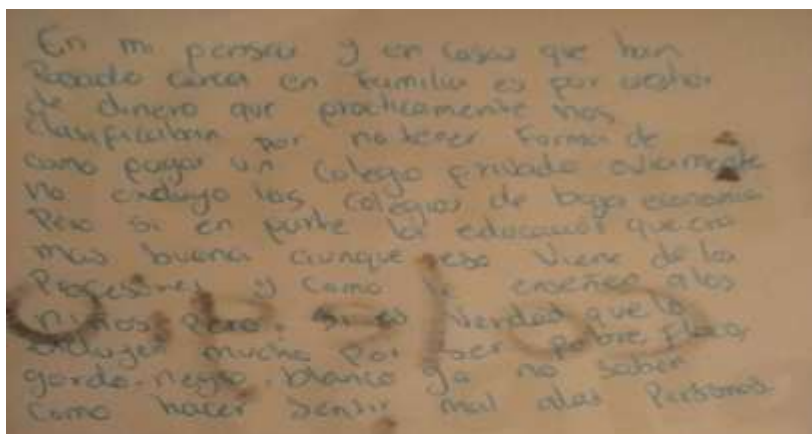 En mi pensar y en casas que han
Pasado cerca en Familia es por
de dinero que practicamente nos
clasificaban por no tener Forma de
como pagar un Colegio privado oviamente
No excluyo los colegios de baja economia
Pero si en parte la educacion que era
mas buena aunque eso viene de los
Profesores y como le enseñen a los
niños Pero. si es verdad que lo
excluyen mucho por ser pobre, flaco,
gordo. negro. blanco ya no saben
Como hacer Sentir mal alas Personas.